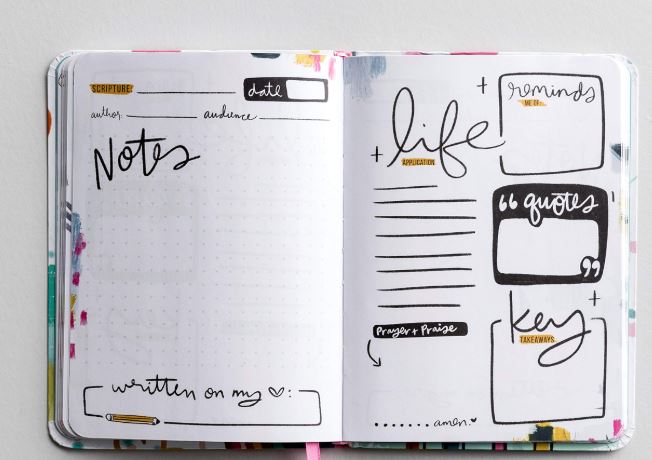 SCRIPTURE:
date
author:
audience
Notes
written on my ♡:
reminds
ME OF:
life
APPLICATION
“ quotes
”
Prayer + Praise
key
TAKEAWAYS
amen.♥